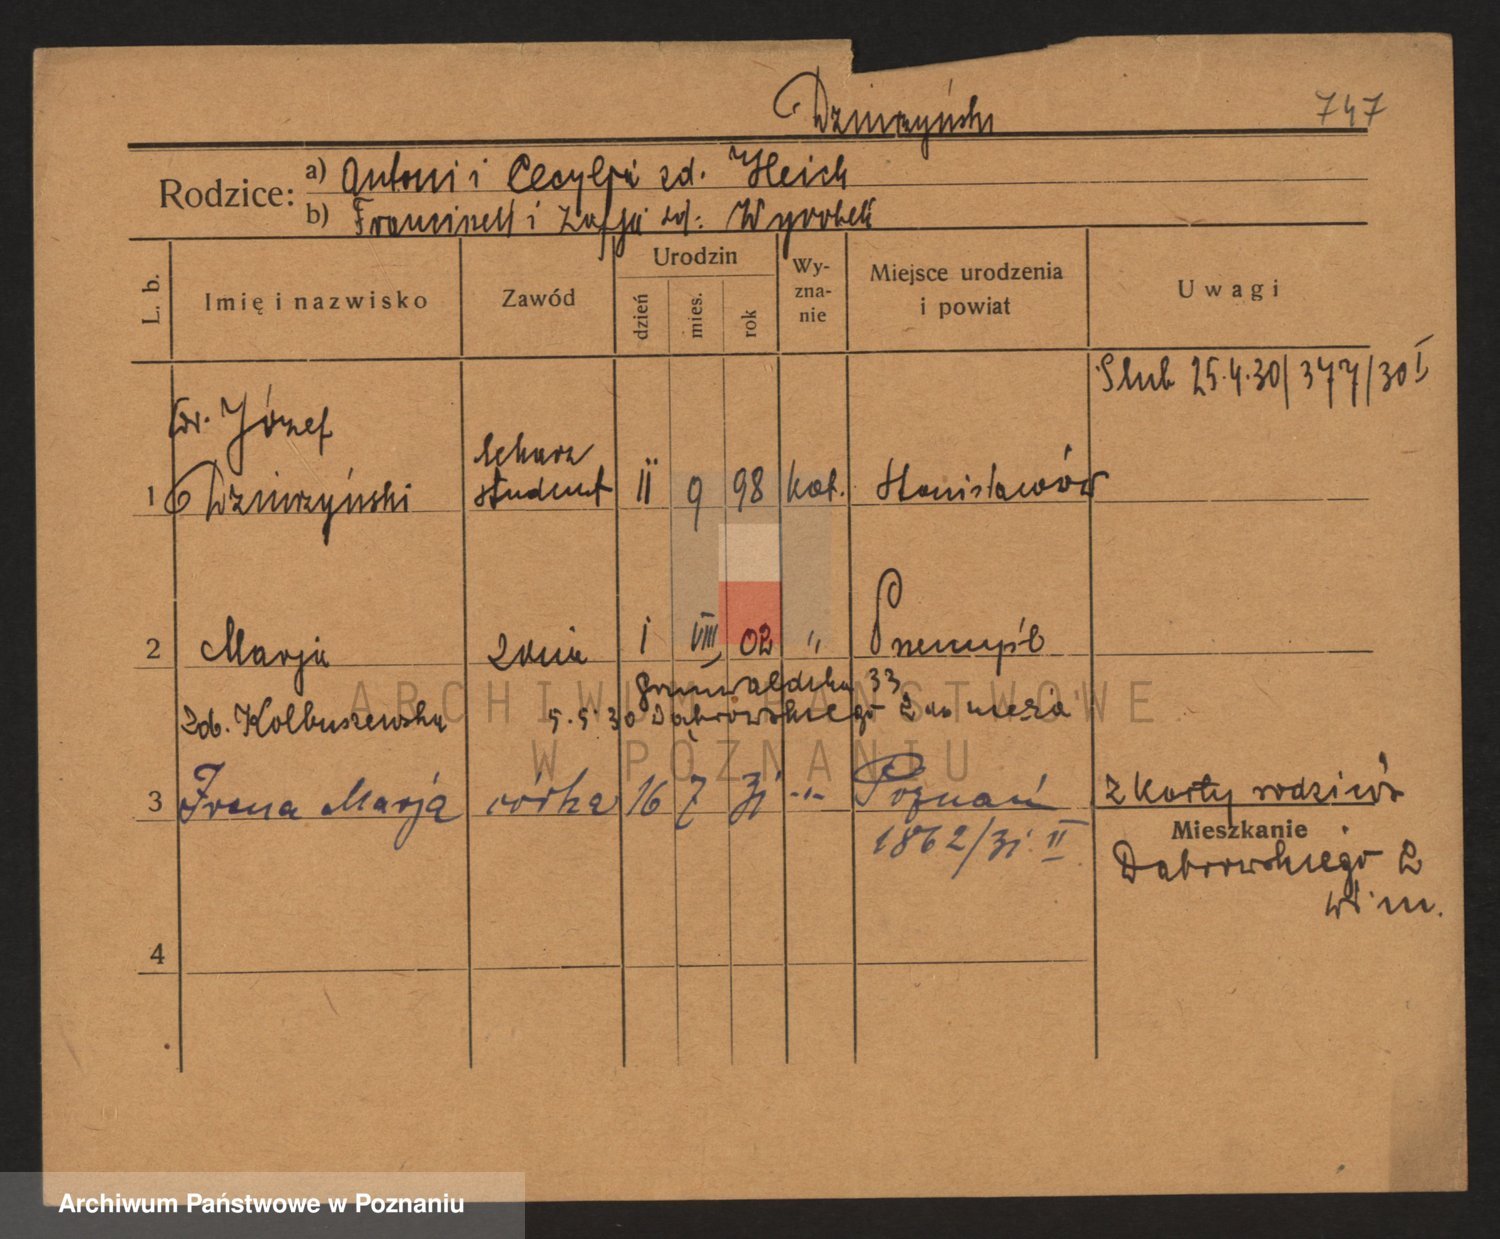 Dzierzyński 747
Rodzice: a) Antoni i Cecylja zd. Heich
b) Franciszek i Zofja zd. Wyrobek
L. b. Imię i nazwisko Zawód Urodzin dzień mies. rok Wy-zna-nie Miejsce urodzenia i powiat Uwagi
Slub 25.4.30/377/30 I
dr. Józef
lekarz
1 Dzierzyński student 11 9 98 kat. Stanisławów
2 Marja żona 1 VIII 02 " Przemyśl
Grunwaldzka 33
zd. Kolbuszewska 5.5.30 Dąbrowskiego 2 do męża
3 Irena Marja córka 16 7 31 -"- Poznań z karty rodziców
1862/31 II Mieszkanie
Dąbrowskiego 2
4
ARCHIWUM PAŃSTWOWE
W POZNANIU
Archiwum Państwowe w Poznaniu